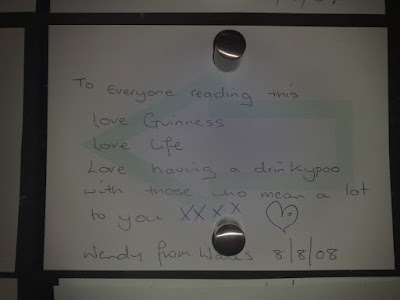 To Everyone reading this
Love Guinness
Love Life
Love having a drinkypoo
with those who mean a lot
to you XXXX
Wendy from Wales 8/8/08